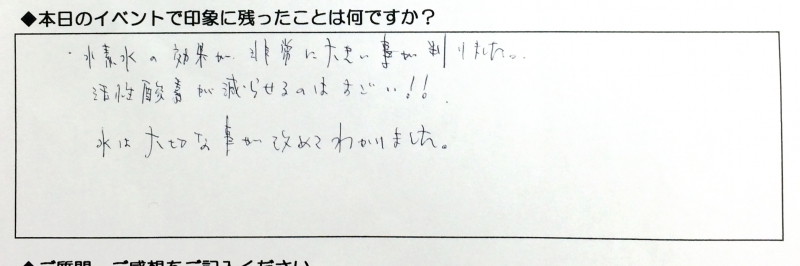 ◆本日のイベントで印象に残ったことは何ですか？
・水素水の効果が非常に大きい事が判りました。
活性酸素が減らせるのはすごい!!
水は大切な事が改めてわかりました。
◆ご質問、ご感想をご記入ください